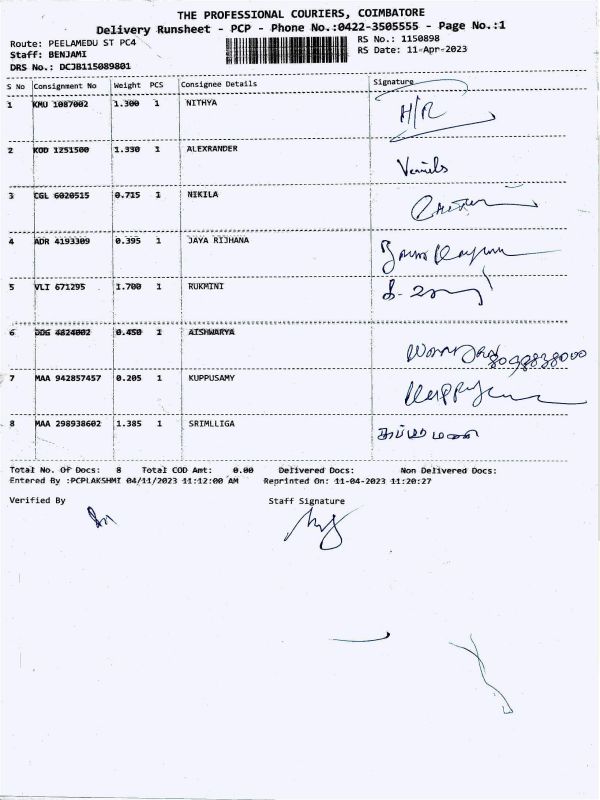 THE PROFESSIONAL COURIERS, COIMBATORE
Delivery Runsheet - PCP - Phone No.:0422-3505555 - Page No.:1
Route: PEELAMEDU ST PC4 RS No.: 1150898
Staff: BENJAMI RS Date: 11-Apr-2023
DRS No.: DCJB115089801
S No Consignment No Weight PCS Consignee Details Signature
1 KMU 1087002 1.300 1 NITHYA H/R
2 KOD 1251500 1.330 1 ALEXRANDER
3 CGL 6020515 0.715 1 NIKILA
4 ADR 4193309 0.395 1 JAYA RIJHANA
5 VLI 671295 1.700 1 RUKMINI
6 DDG 4824002 0.450 1 AISHWARYA
7 MAA 942857457 0.205 1 KUPPUSAMY
8 MAA 298938602 1.385 1 SRIMLLIGA
Total No. Of Docs: 8 Total COD Amt: 0.00 Delivered Docs: Non Delivered Docs:
Entered By :PCPLAKSHMI 04/11/2023 11:12:00 AM Reprinted On: 11-04-2023 11:20:27
Verified By Staff Signature